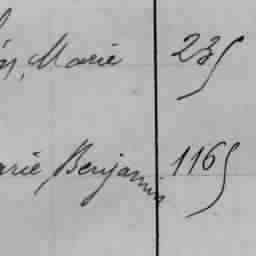 Marie 235
arie Benjamin 1165